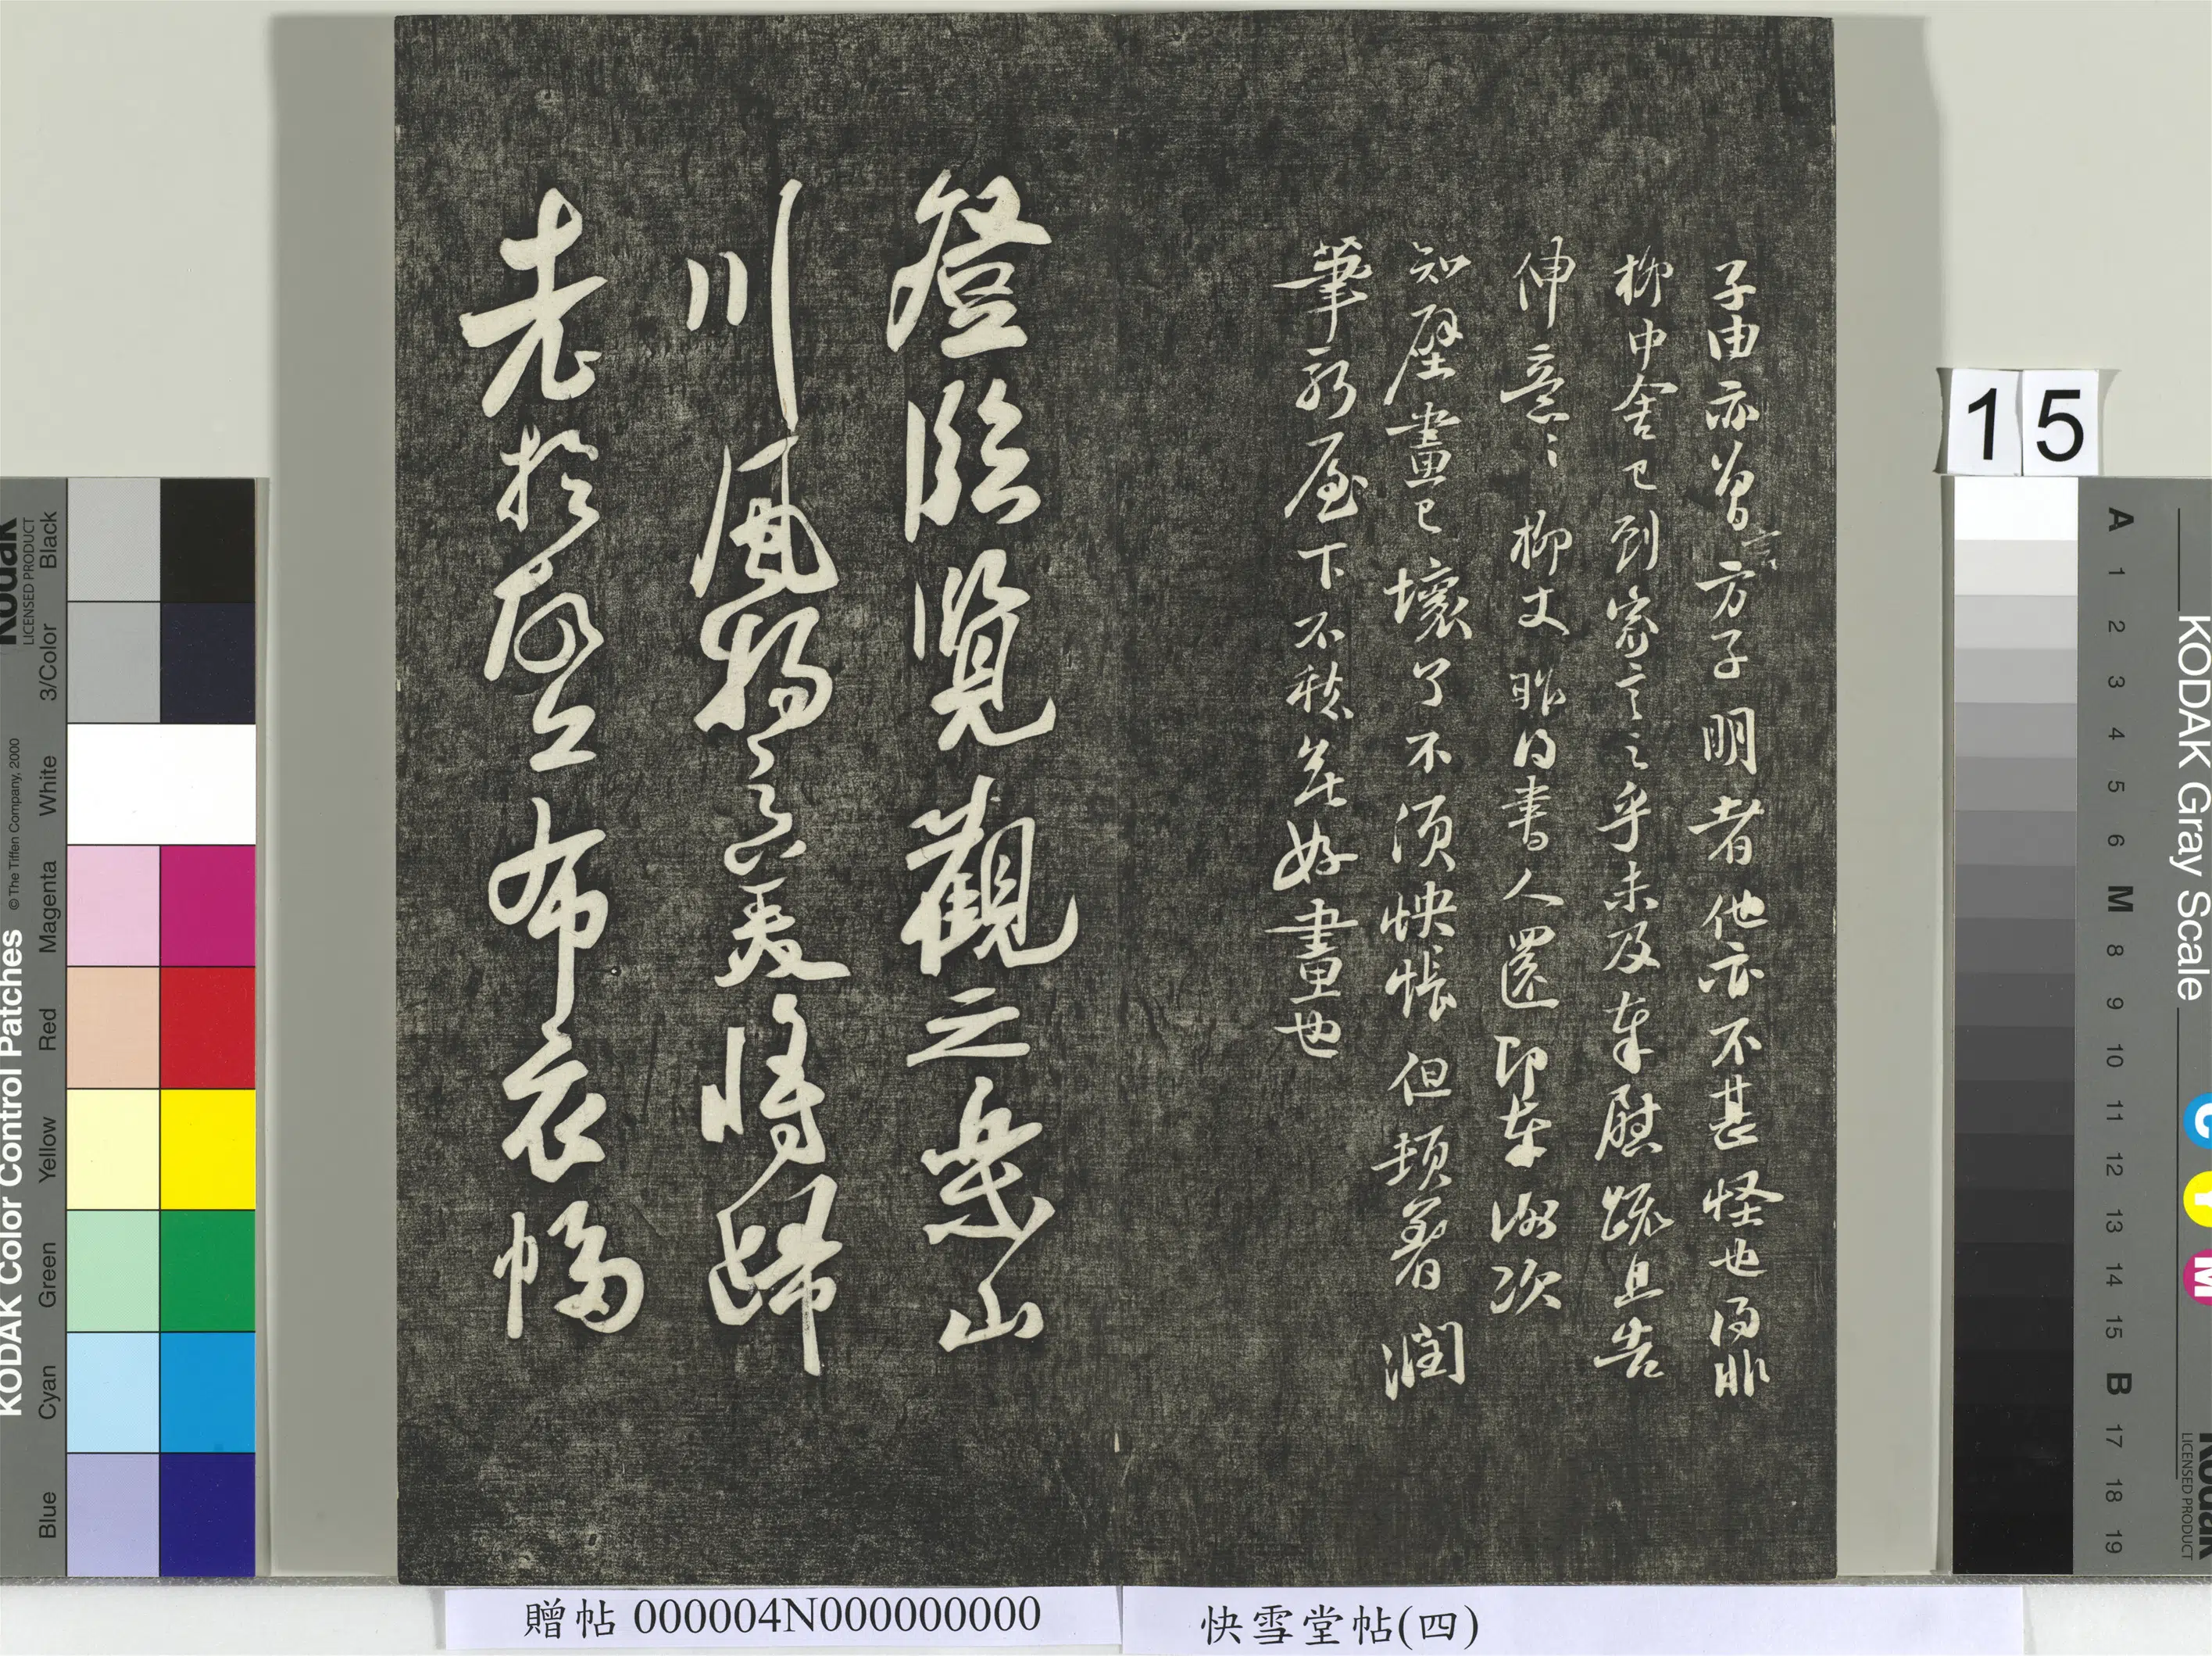 子由亦曾言方子明者他亦不甚怪也得非
柳中舍已到家言之乎未及奉慰疏且告
伸意〻柳丈昨得書人還即奉謝次
知壁畫已壞了不須怏悵但頓著潤
筆新屋下不愁無好畫也
登臨覽觀之樂山
川風物之美將歸
老於故丘布衣幅
15
KODAK Color Control Patches
© The Tiffen Company, 2000
Kodak
LICENSED PRODUCT
Blue
Cyan
Green
Yellow
Red
Magenta
White
3/Color
Black
KODAK Gray Scale
C
Y
M
Kodak
LICENSED PRODUCT
A 1 2 3 4 5 6 M 8 9 10 11 12 13 14 15 B 17 18 19
贈帖 000004N000000000
快雪堂帖(四)